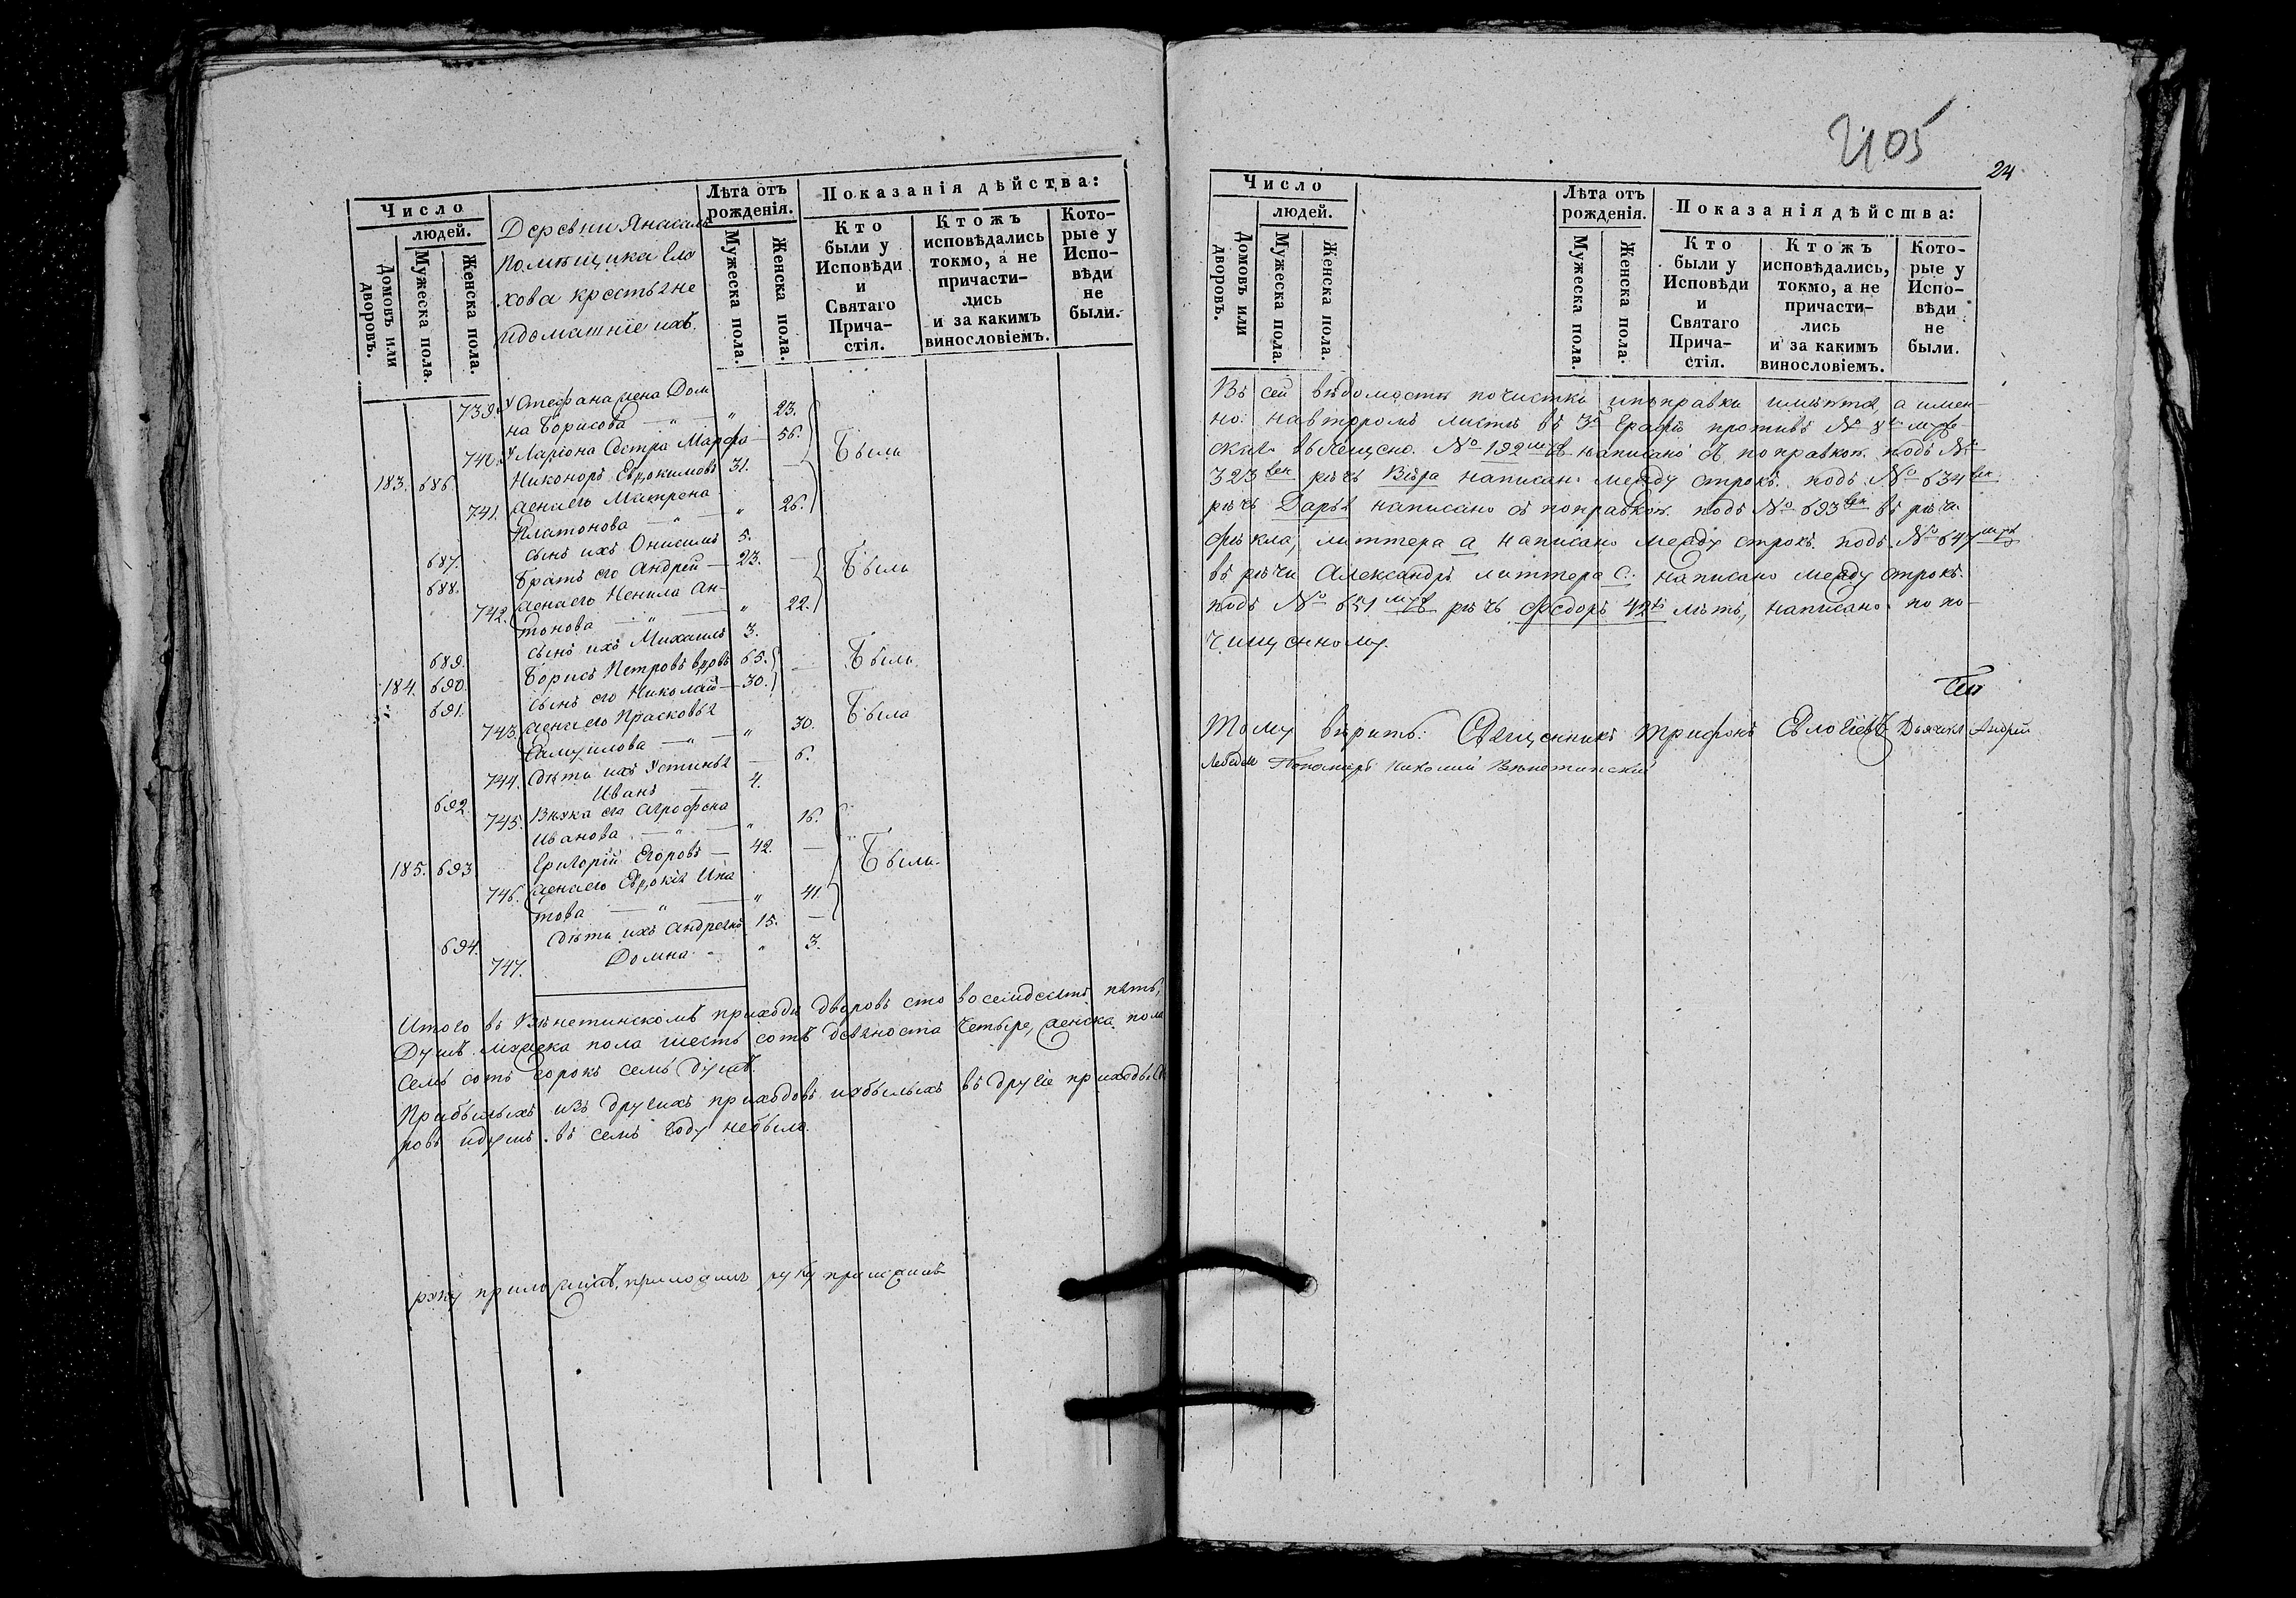 Число
людей.
Домовъ или дворовъ.
Мужеска пола.
Женска пола.
Деревни
помѣщика Ело
хова крестьяне
и домашніе ихъ.
Лѣта отъ
рожденія.
Мужеска пола.
Женска пола.
Показанія дѣйства:
Кто
были у
Исповѣди
и
Святаго
Прича-
стія.
Ктожъ
исповѣдались
токмо, а не
причасти-
лись
и за какимъ
винословіемъ.
Кото-
рые у
Испо-
вѣди
не
были.
739. У Стефана жена Дом
на Борисова — " — " 23.
740. У Ларіона Сестра Марфа — 56. Были
183. 686. Никоноръ Евдокимовъ 31. —
741. жена его Матрена
Платонова — " — " 26.
687. сынъ ихъ Онисимъ 5.
688. Братъ его Андрей — 23. — Были
742. жена его Ненила Ан-
тонова — " — " 22.
689. сынъ ихъ Михаилъ 3.
184. 690. Борисъ Петровъ вдовъ 65. — Были
691. сынъ его Николай — 30.
743. жена его Прасковья
Самуилова — " — " 30. Была
744. дѣти ихъ Устинья — 6.
692. Иванъ — 4.
745. Внука его Агрофена
Иванова — " — " 16.
185. 693. Григорій Егоровъ — 42. — Были
746. жена его Евдокія Ипа
това — " — " 41.
694. дѣти ихъ Андреянъ 15. —
747. Домна " 3.
Итого въ Вѣнетинскомъ приходѣ дворовъ сто восемдесятъ пять,
Душъ мужеска пола шесть сотъ девяноста четыре, женска пола
семь сотъ сорокъ семь душъ.
Прибылыхъ изъ другихъ приходовъ и убылыхъ въ другіе приходы дво
ровъ и душъ въ семъ году небыло.
руку приложилъ, приложилъ руку приложилъ
2405
24
Число
людей.
Домовъ или дворовъ.
Мужеска пола.
Женска пола.
Лѣта отъ
рожденія.
Мужеска пола.
Женска пола.
Показанія дѣйства:
Кто
были у
Исповѣди
и
Святаго
Прича-
стія.
Ктожъ
исповѣдались,
токмо, а не
причасти-
лись
и за какимъ
винословіемъ.
Кото-
рые у
Испо-
вѣди
не
были.
Въ сей вѣдомости почистки и поправки имѣются, а имен-
но: на второмъ листѣ въ 3й графѣ противъ № 8го муже-
ска № 192 муж написано съ поправкою. подъ №
323 жен рѣчь Вѣра написано между строкъ. подъ № 634 жен
рѣчь Дарья написано съ поправкою. подъ № 693 жен въ рѣчи
Ѳекла, литтера а написано между строкъ. подъ № 647 муж
въ рѣчи Александръ литтера с. написано между строкъ.
подъ № 651 муж рѣчь Ѳедоръ 42хъ лѣтъ, написано по по-
чищенному.
Тому вѣритъ: Священникъ Трифонъ Евлогіевъ Дьячекъ Андрей
Лебедев Пономарь Николай Вѣнетинскій